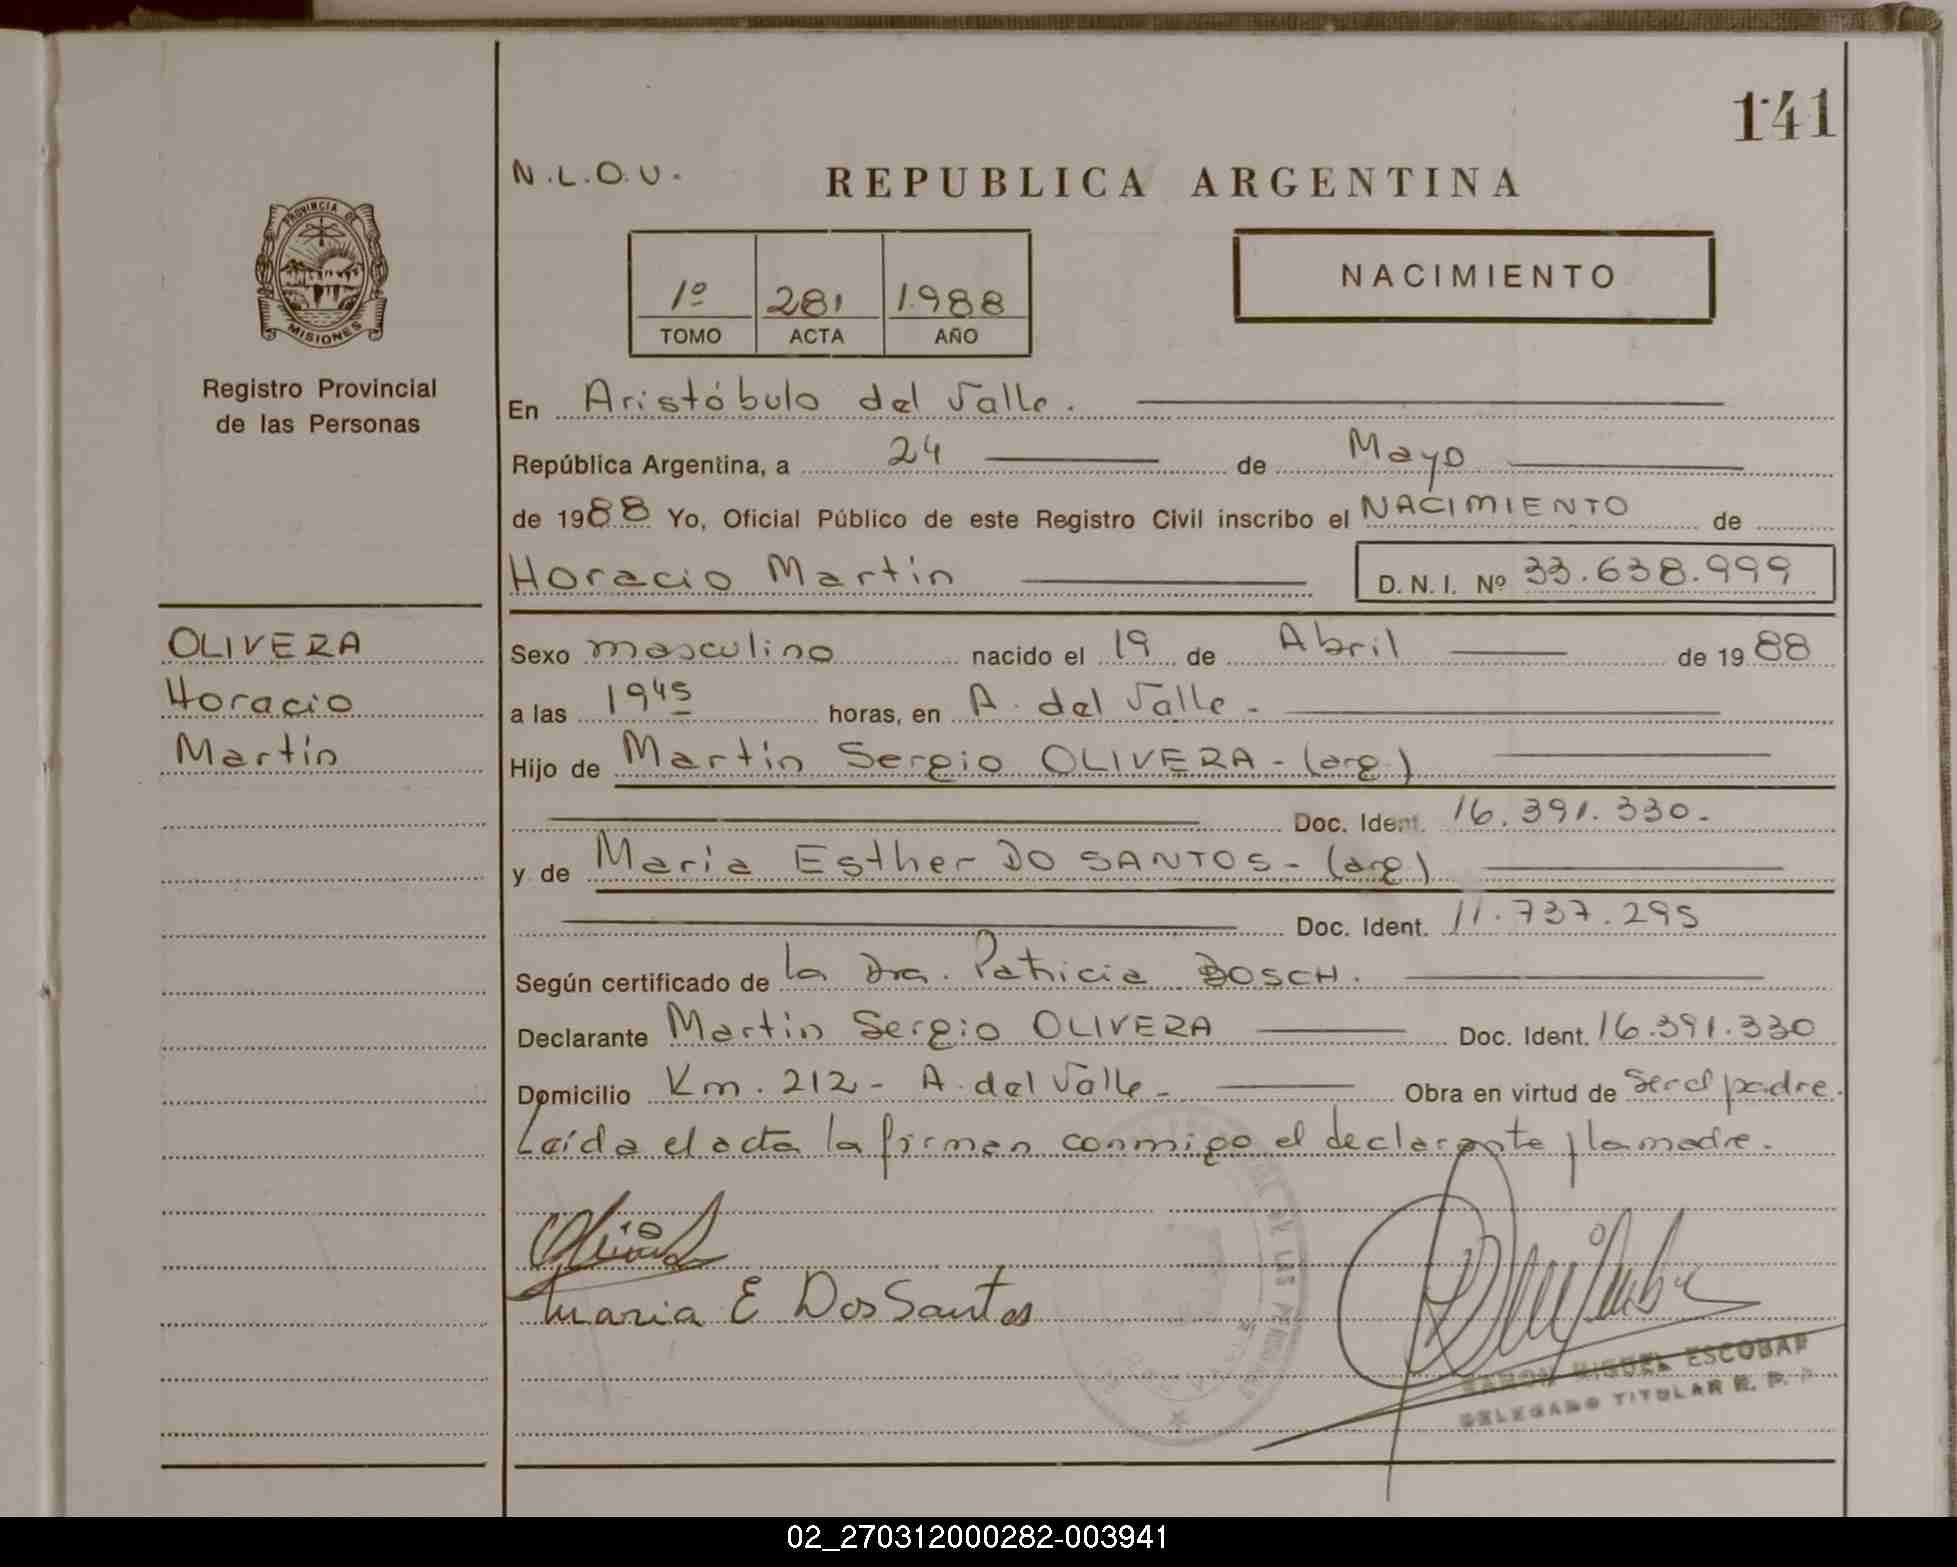 141
N.L.O.U.
REPUBLICA ARGENTINA
PROVINCIA DE
MISIONES
1º 281 1.988
TOMO ACTA AÑO
NACIMIENTO
Registro Provincial
de las Personas
En Aristóbulo del Valle.
República Argentina, a 24 de Mayo
de 1988 Yo, Oficial Público de este Registro Civil inscribo el NACIMIENTO de
Horacio Martín D. N. I. Nº 33.638.999
OLIVERA
Horacio
Martín
Sexo masculino nacido el 19 de Abril de 1988
a las 19 45 horas, en A. del Valle -
Hijo de Martín Sergio OLIVERA - (arg.)
Doc. Ident. 16.391.330.
y de María Esther DO SANTOS - (arg)
Doc. Ident. 11.737.295
Según certificado de la Dra. Patricia BOSCH.
Declarante Martín Sergio OLIVERA Doc. Ident. 16.391.330
Domicilio Km. 212 - A. del Valle - Obra en virtud de ser el padre.
Leída el acta la firman conmigo el declarante y la madre.
Maria E Dos Santos
RAMON MIGUEL ESCOBAR
DELEGADO TITULAR R. P.
02_270312000282-003941